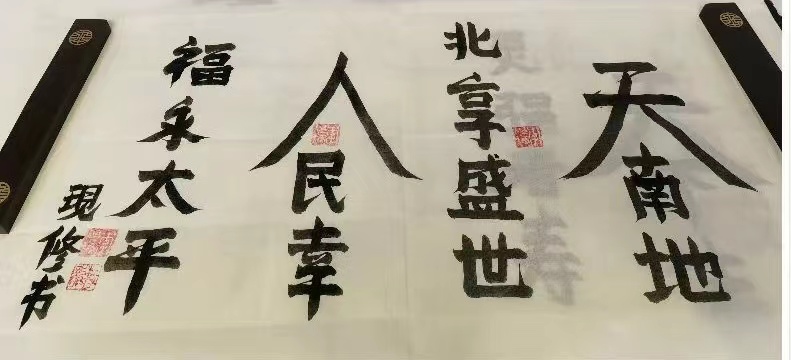 天南地
北享盛世
人民幸
福永太平
現修书